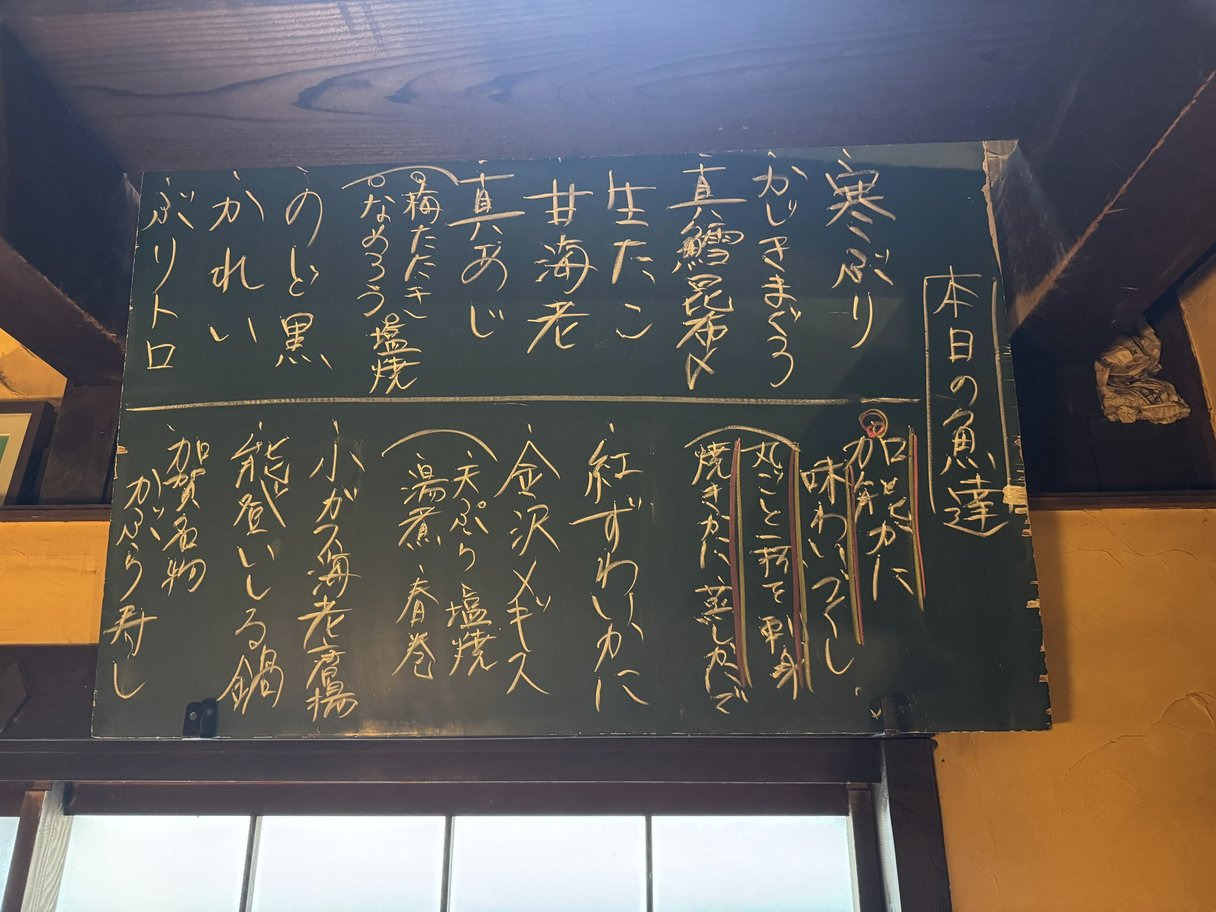 本日の魚達
寒ぶり
かじきまぐろ
真鱈昆布〆
生たこ
甘海老
真あじ
梅たたき 塩焼
なめろう
のど黒
かれい
ぶりトロ
加能かに
味わいづくし
丸ごと一杯を刺身
焼きかに 蒸しかにで
紅ずわいかに
金沢メギス
天ぷら 塩焼
湯煮 春巻
小ガラ海老唐揚
能登いしる鍋
加賀名物
かぶら寿し